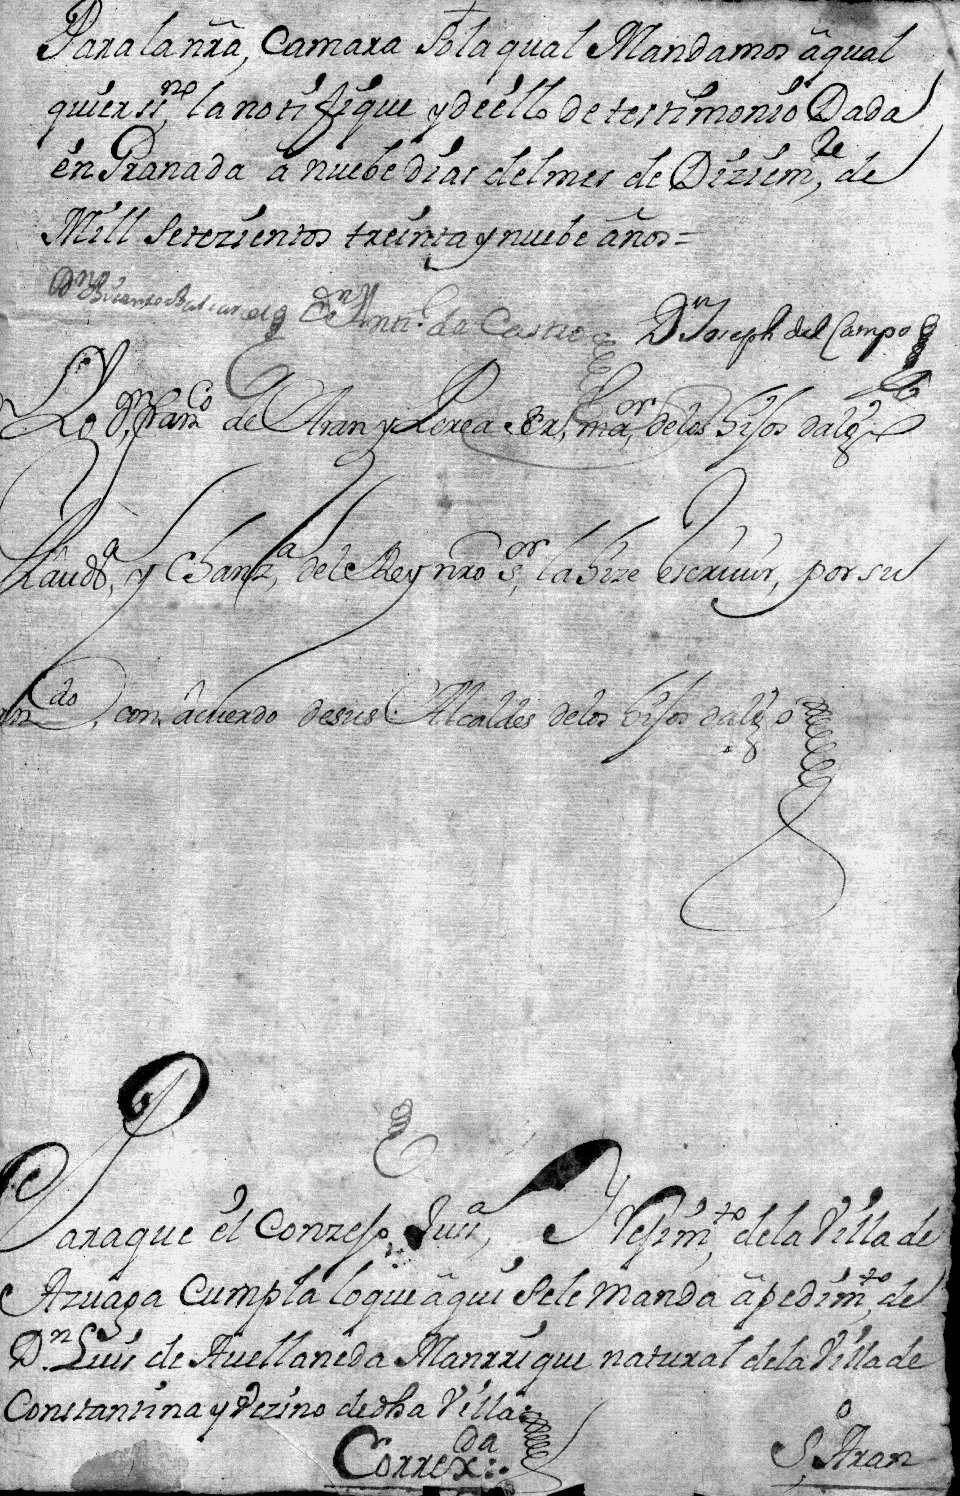 Para la nrã, Camara So la qual Mandamos â qual
quier ss.no la notifique y de ello de testimonio Dada
ên Granada â nuebe dias del mes de Diziem.re, de
Mill Setezientos treinta y nuebe años=
Dn Antt.o de Castro Dn Joseph del Campo
Yo Dn Fran.co de Aran y Perea Ess.no ma.or, de los hijos dalgo
Audª, y Chanz.a, del Rey nrõ s.or, la hize escriuir, por su
man.do, con âcuerdo de sus Alcaldes de los hijos dalgo
Para que êl Conzejo Justi.a, Y Rejim.to, de la Villa de
Azuaga Cumpla lo que âqui Se le manda â pedim.to, del
D.n Luis de Auellaneda Manrrique natural de la Villa de
Constantina y Vezino de dha Villa
Correx.da S.o Aran